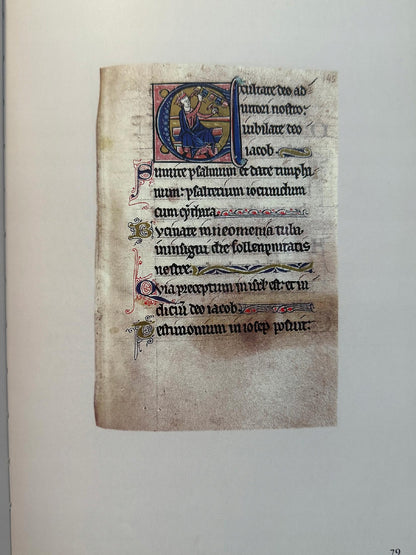 Exultate deo ad
iutori nostro:
iubilate deo
iacob
Sumite psalmum et date timpha
num: psalterium iocundum
cum cythara
Bucinate in neomenia tuba
in insigni die sollempnitatis
uestre
Quia preceptum in isrl est: et iu
diciū deo iacob
Testimonium in iosep posuit:
79